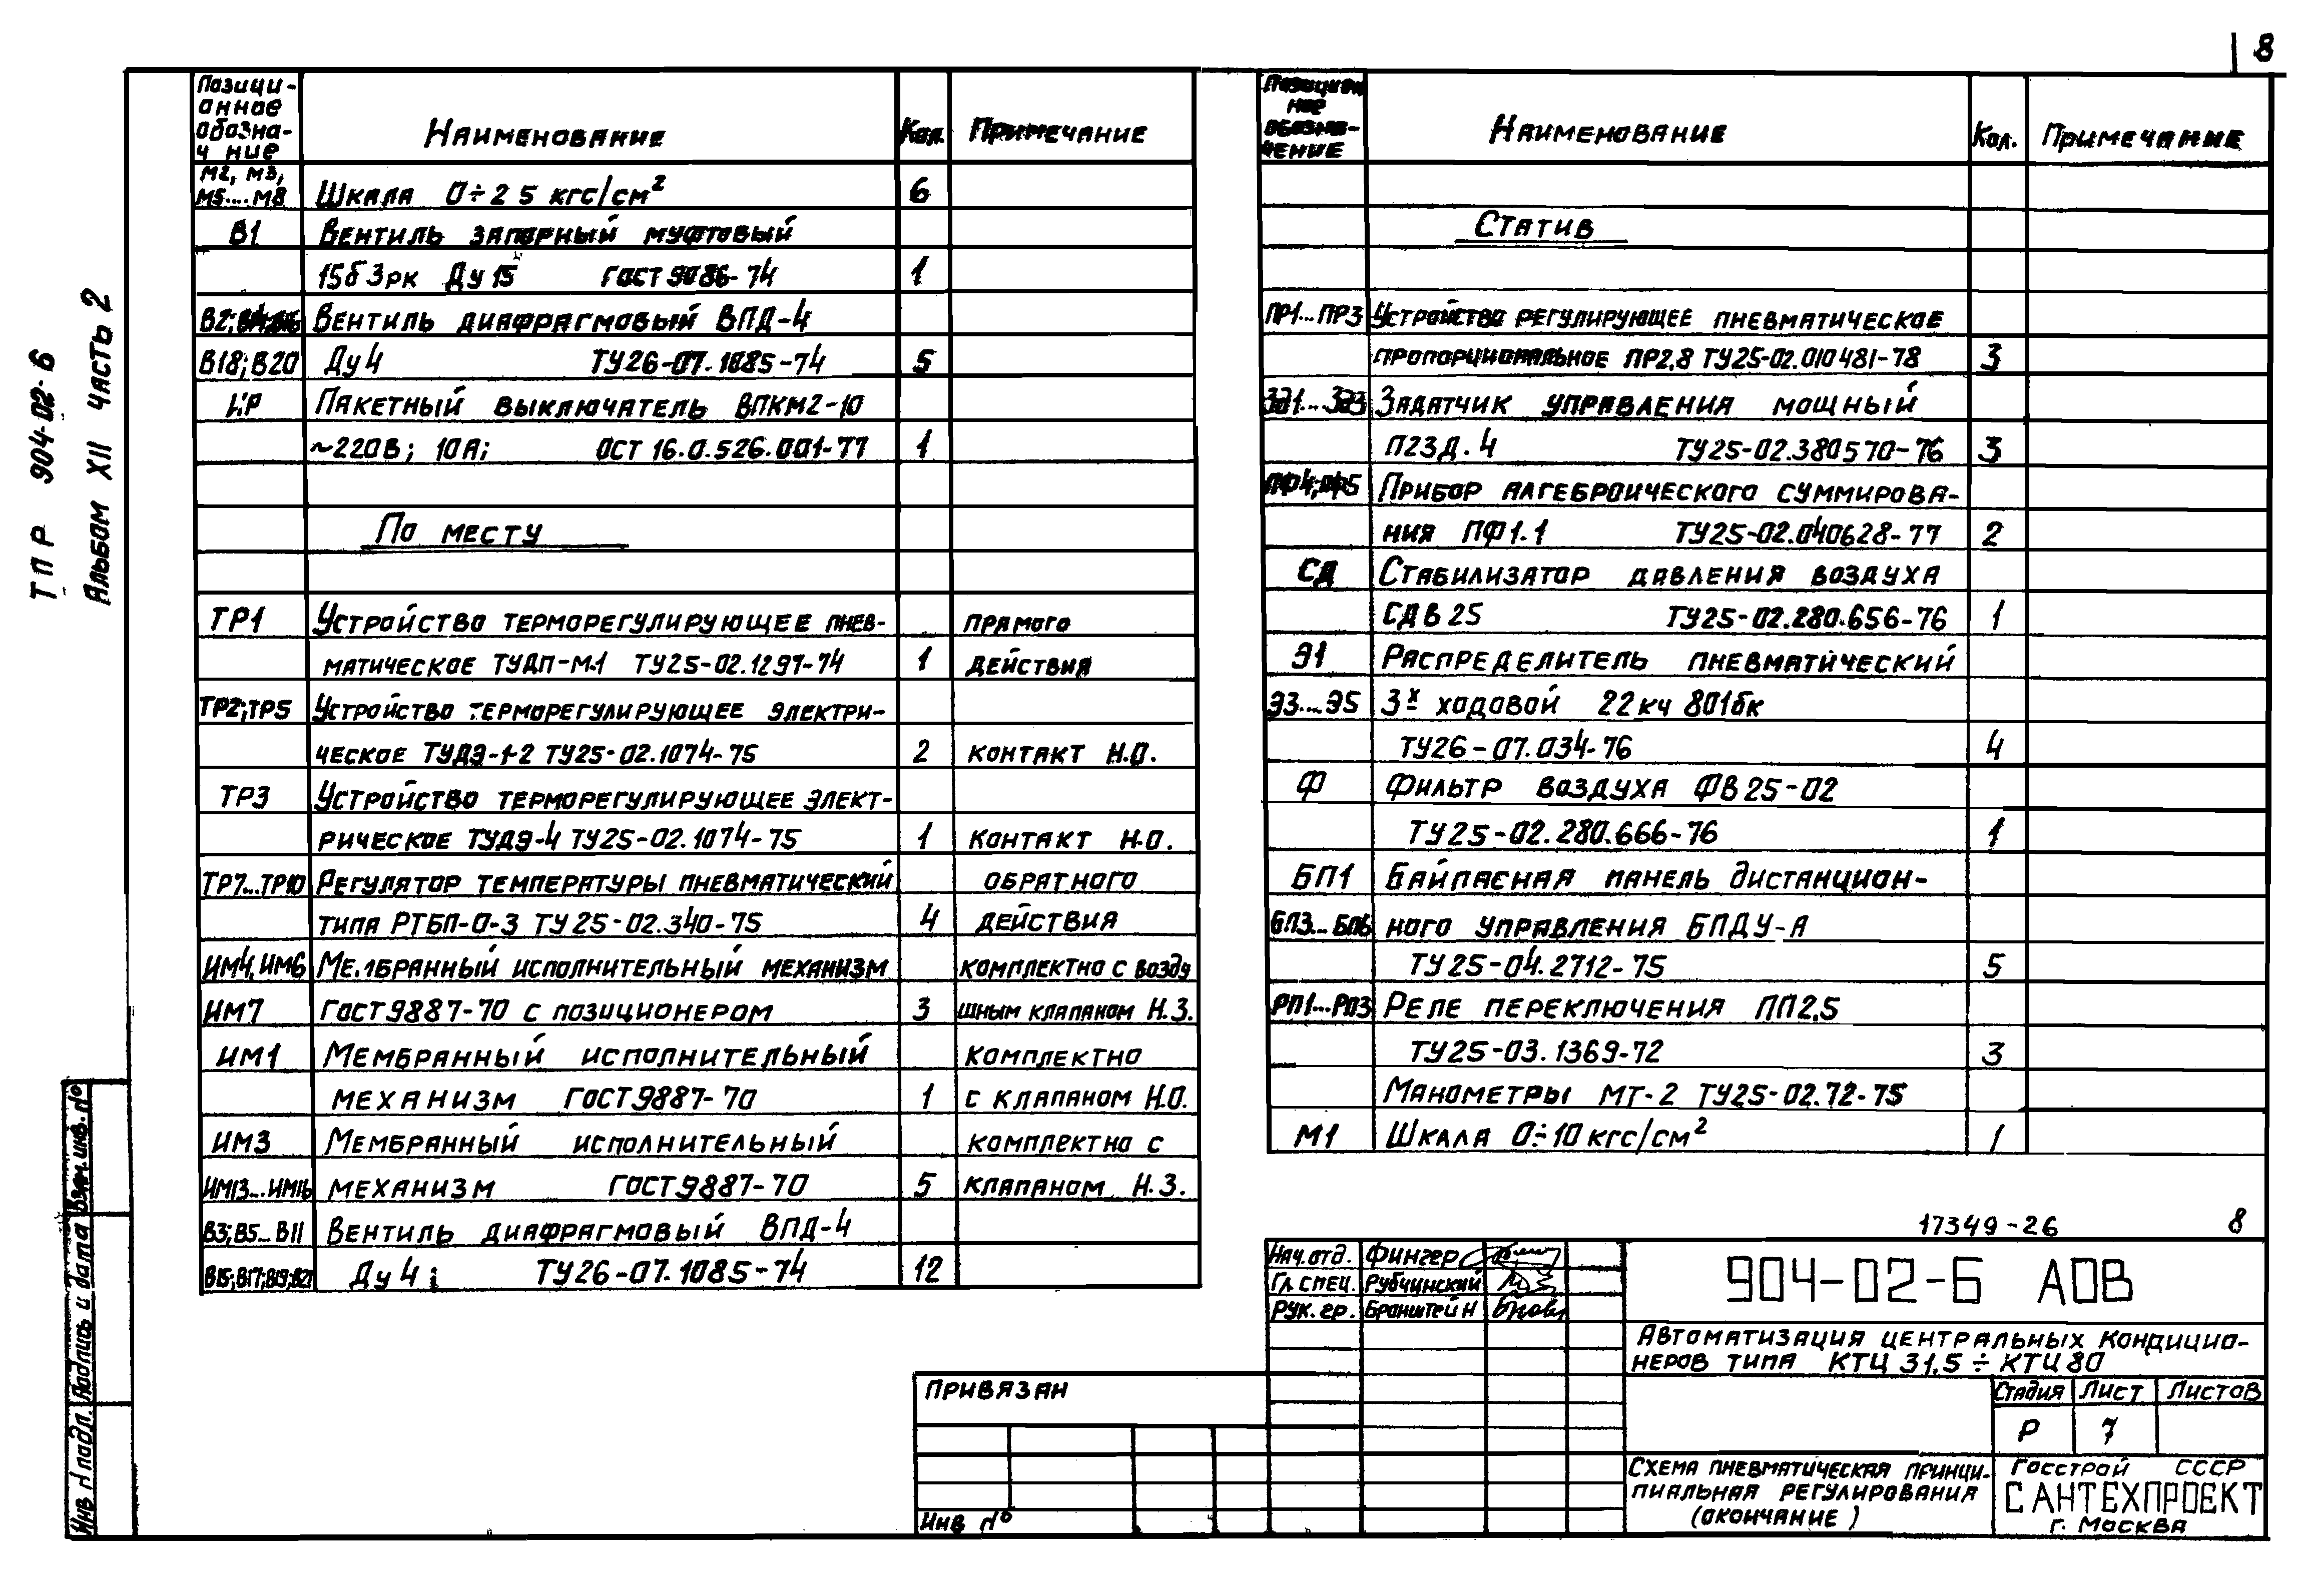 8
ТПР 904-02-6
Альбом XII часть 2
Позици-
онное
обозна-
чение
Наименование
Кол.
Примечание
М2, М3,
М5....М8 Шкала 0÷25 кгс/см² 6
В1 Вентиль запорный муфтовый
15б3рк Ду 15 ГОСТ 9086-74 1
Вентиль диафрагмовый ВПД-4
В18; В20 Ду 4 ТУ26-07.1085-74 5
Пакетный выключатель ВПКМ2-10
~220В; 10А; ОСТ 16.0.526.001-77 1
По месту
ТР1 Устройство терморегулирующее пнев- прямого
матическое ТУДП-М1 ТУ25-02.1297-74 1 действия
ТР2;ТР5 Устройство терморегулирующее электри-
ческое ТУДЭ-1-2 ТУ25-02.1074-75 2 контакт Н.О.
ТР3 Устройство терморегулирующее элект-
рическое ТУДЭ-4 ТУ25-02.1074-75 1 контакт Н.О.
ТР7...ТР10 Регулятор температуры пневматический обратного
типа РТБП-0-3 ТУ25-02.340-75 4 действия
ИМ4, ИМ6 Мембранный исполнительный механизм комплектно с возду
ИМ7 ГОСТ 9887-70 с позиционером 3 шным клапаном Н.З.
ИМ1 Мембранный исполнительный комплектно
механизм ГОСТ 9887-70 1 с клапаном Н.О.
ИМ3 Мембранный исполнительный комплектно с
ИМ13...ИМ16 механизм ГОСТ 9887-70 5 клапаном Н.З.
В3;В5...В11 Вентиль диафрагмовый ВПД-4
В15;В17;В19;В21 Ду 4; ТУ26-07.1085-74 12
Позицион
ное
обозна-
чение
Наименование
Кол.
Примечание
Статив
ПР1...ПР3 Устройство регулирующее пневматическое
пропорциональное ПР2.8 ТУ25-02.010481-78 3
Зд1...Зд3 Задатчик управления мощный
П23Д.4 ТУ25-02.380570-76 3
Прибор алгеброического суммирова-
ния ПФ1.1 ТУ25-02.040628-77 2
СД Стабилизатор давления воздуха
СДВ 25 ТУ25-02.280.656-76 1
Э1 Распределитель пневматический
Э3...Э5 3х ходовой 22кч 801бк
ТУ26-07.034-76 4
Ф Фильтр воздуха ФВ25-02
ТУ25-02.280.666-76 1
БП1 Байпасная панель дистанцион-
БП3...БП6 ного управления БПДУ-А
ТУ25-04.2712-75 5
РП1...РП3 Реле переключения ПП2.5
ТУ25-03.1369-72 3
Манометры МТ-2 ТУ25-02.72-75
М1 Шкала 0÷10 кгс/см² 1
17349-26 8
Нач.отд. Фингер
Гл спец. Рубчинский
Рук. гр. Бронштейн
904-02-6 АОВ
Автоматизация центральных кондицио-
неров типа КТЦ 31,5÷КТЦ 80
Стадия Лист Листов
Р 7
Схема пневматическая принци-
пиальная регулирования
(окончание)
Госстрой СССР
САНТЕХПРОЕКТ
г. Москва
Привязан
Инв №
Взам. инв. №
Подпись и дата
Инв № подл.